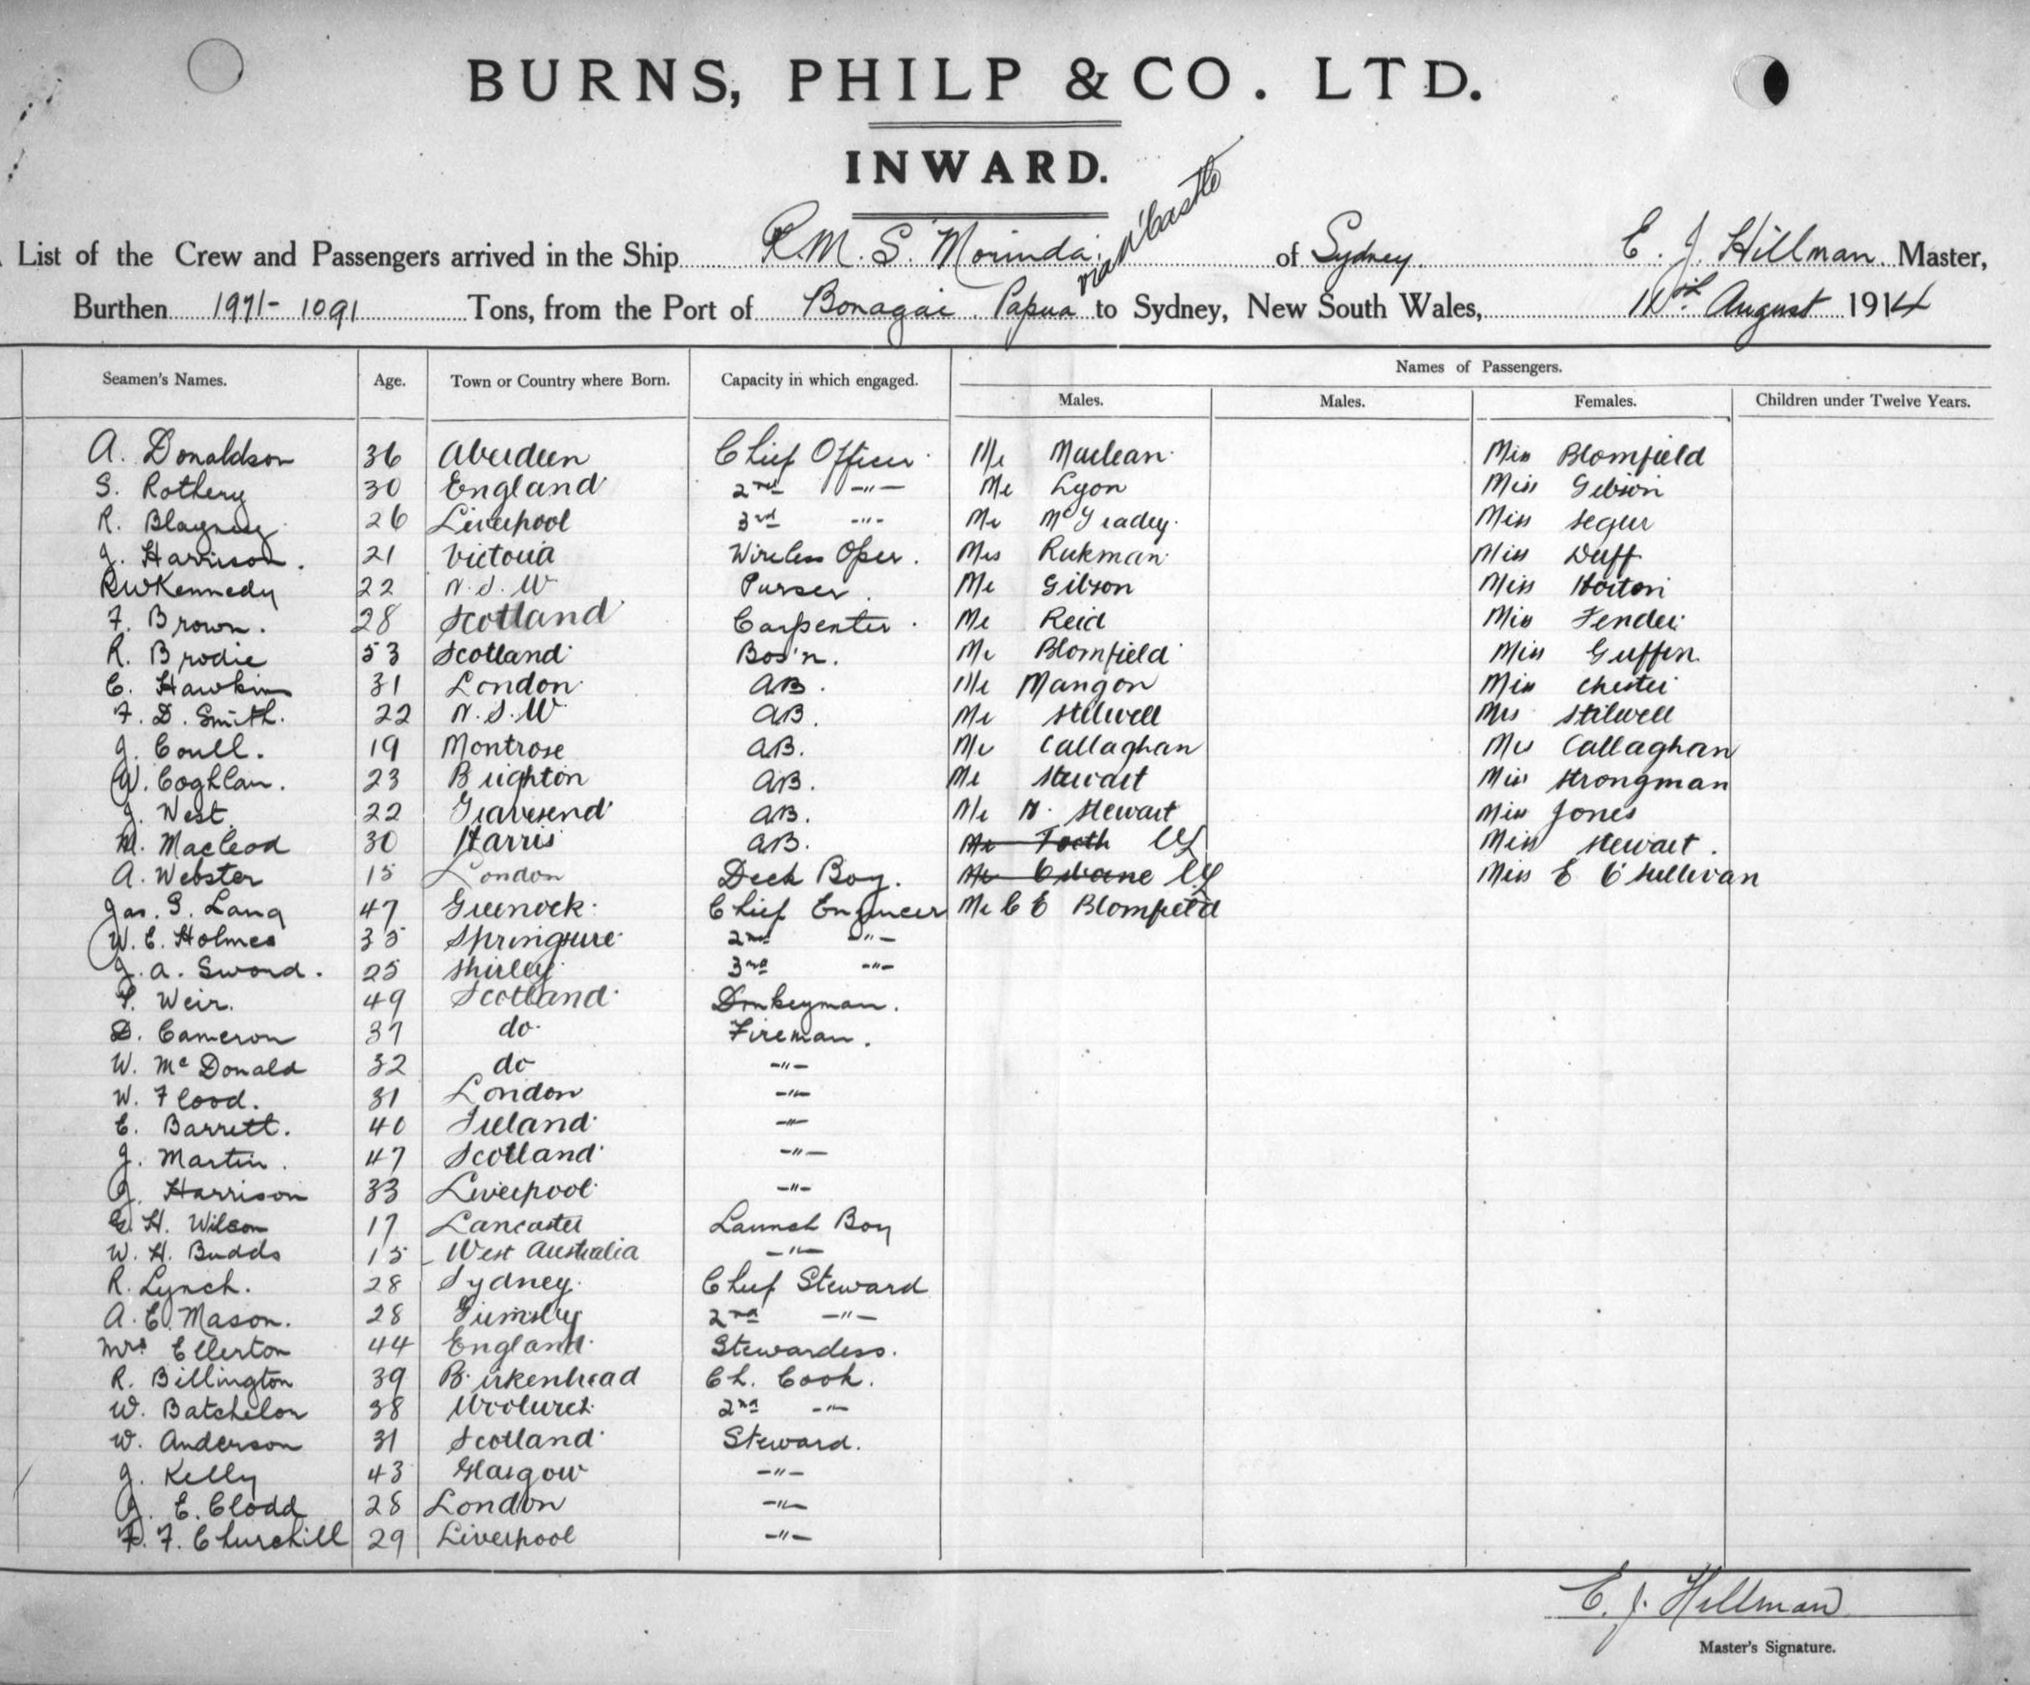 BURNS, PHILP & CO. LTD.
INWARD.
List of the Crew and Passengers arrived in the Ship R.M.S. Morinda via N'Castle of Sydney E. J. Hillman Master,
Burthen 1971-1091 Tons, from the Port of Bonagai Papua to Sydney, New South Wales, August 1914
Names of Passengers.
Seamen's Names. Age. Town or Country where Born. Capacity in which engaged. Males. Males. Females. Children under Twelve Years.
A. Donaldson 36 Aberdeen Chief Officer Mr Maclean Miss Blomfield
S. Rothery 30 England 2nd -"- Mr Lyon Miss Gibson
R. Blayney 26 Liverpool 3rd -"- Mr McGradey Miss Segur
J. Harrison. 21 Victoria Wireless Oper. Mrs Ruckman Miss Duff
R W Kennedy 22 N.S.W Purser. Mr Gibson Miss Horton
F. Brown. 28 Scotland Carpenter. Mr Reid Miss Fender
R. Brodie 53 Scotland Bos'n. Mr Blomfield Miss Griffin
C. Hawkins 31 London AB. Mr Mangon Miss Chester
F. D. Smith. 22 N.S.W. AB. Mr Stilwell Mrs Stilwell
J. Coull. 19 Montrose AB. Mr Callaghan Mrs Callaghan
W. Coghlan. 23 Brighton AB. Mr Stewart Miss Strongman
J. West. 22 Gravesend AB. Mr N. Stewart Miss Jones
M. Macleod 30 Harris AB. Mr Tooth Miss Stewart.
A. Webster 15 London Deck Boy. Mr Miss E O'Sullivan
Jas. G. Lang 47 Greenock Chief Engineer Mr C E Blomfield
W. E. Holmes 35 Springsure 2nd -"-
J. A. Sword. 25 Shirley 3rd -"-
Weir. 49 Scotland Donkeyman.
D. Cameron 37 do. Fireman.
W. McDonald 32 do -"-
W. Flood. 31 London -"-
E. Barrett. 40 Ireland -"-
J. Martin. 47 Scotland -"-
J. Harrison 33 Liverpool -"-
G. H. Wilson 17 Lancaster Launch Boy
W. H. Budds 15 West Australia -"-
R. Lynch. 28 Sydney. Chief Steward
A. E. Mason. 28 Grimsby 2nd -"-
Mrs Ellerton 44 England Stewardess.
R. Billington 39 Birkenhead Ch. Cook.
W. Batchelor 38 Woolwich 2nd -"-
W. Anderson 31 Scotland Steward.
J. Kelly 43 Glasgow -"-
J. E. Clodd 28 London -"-
F. F. Churchill 29 Liverpool -"-
E. J. Hillman
Master's Signature.